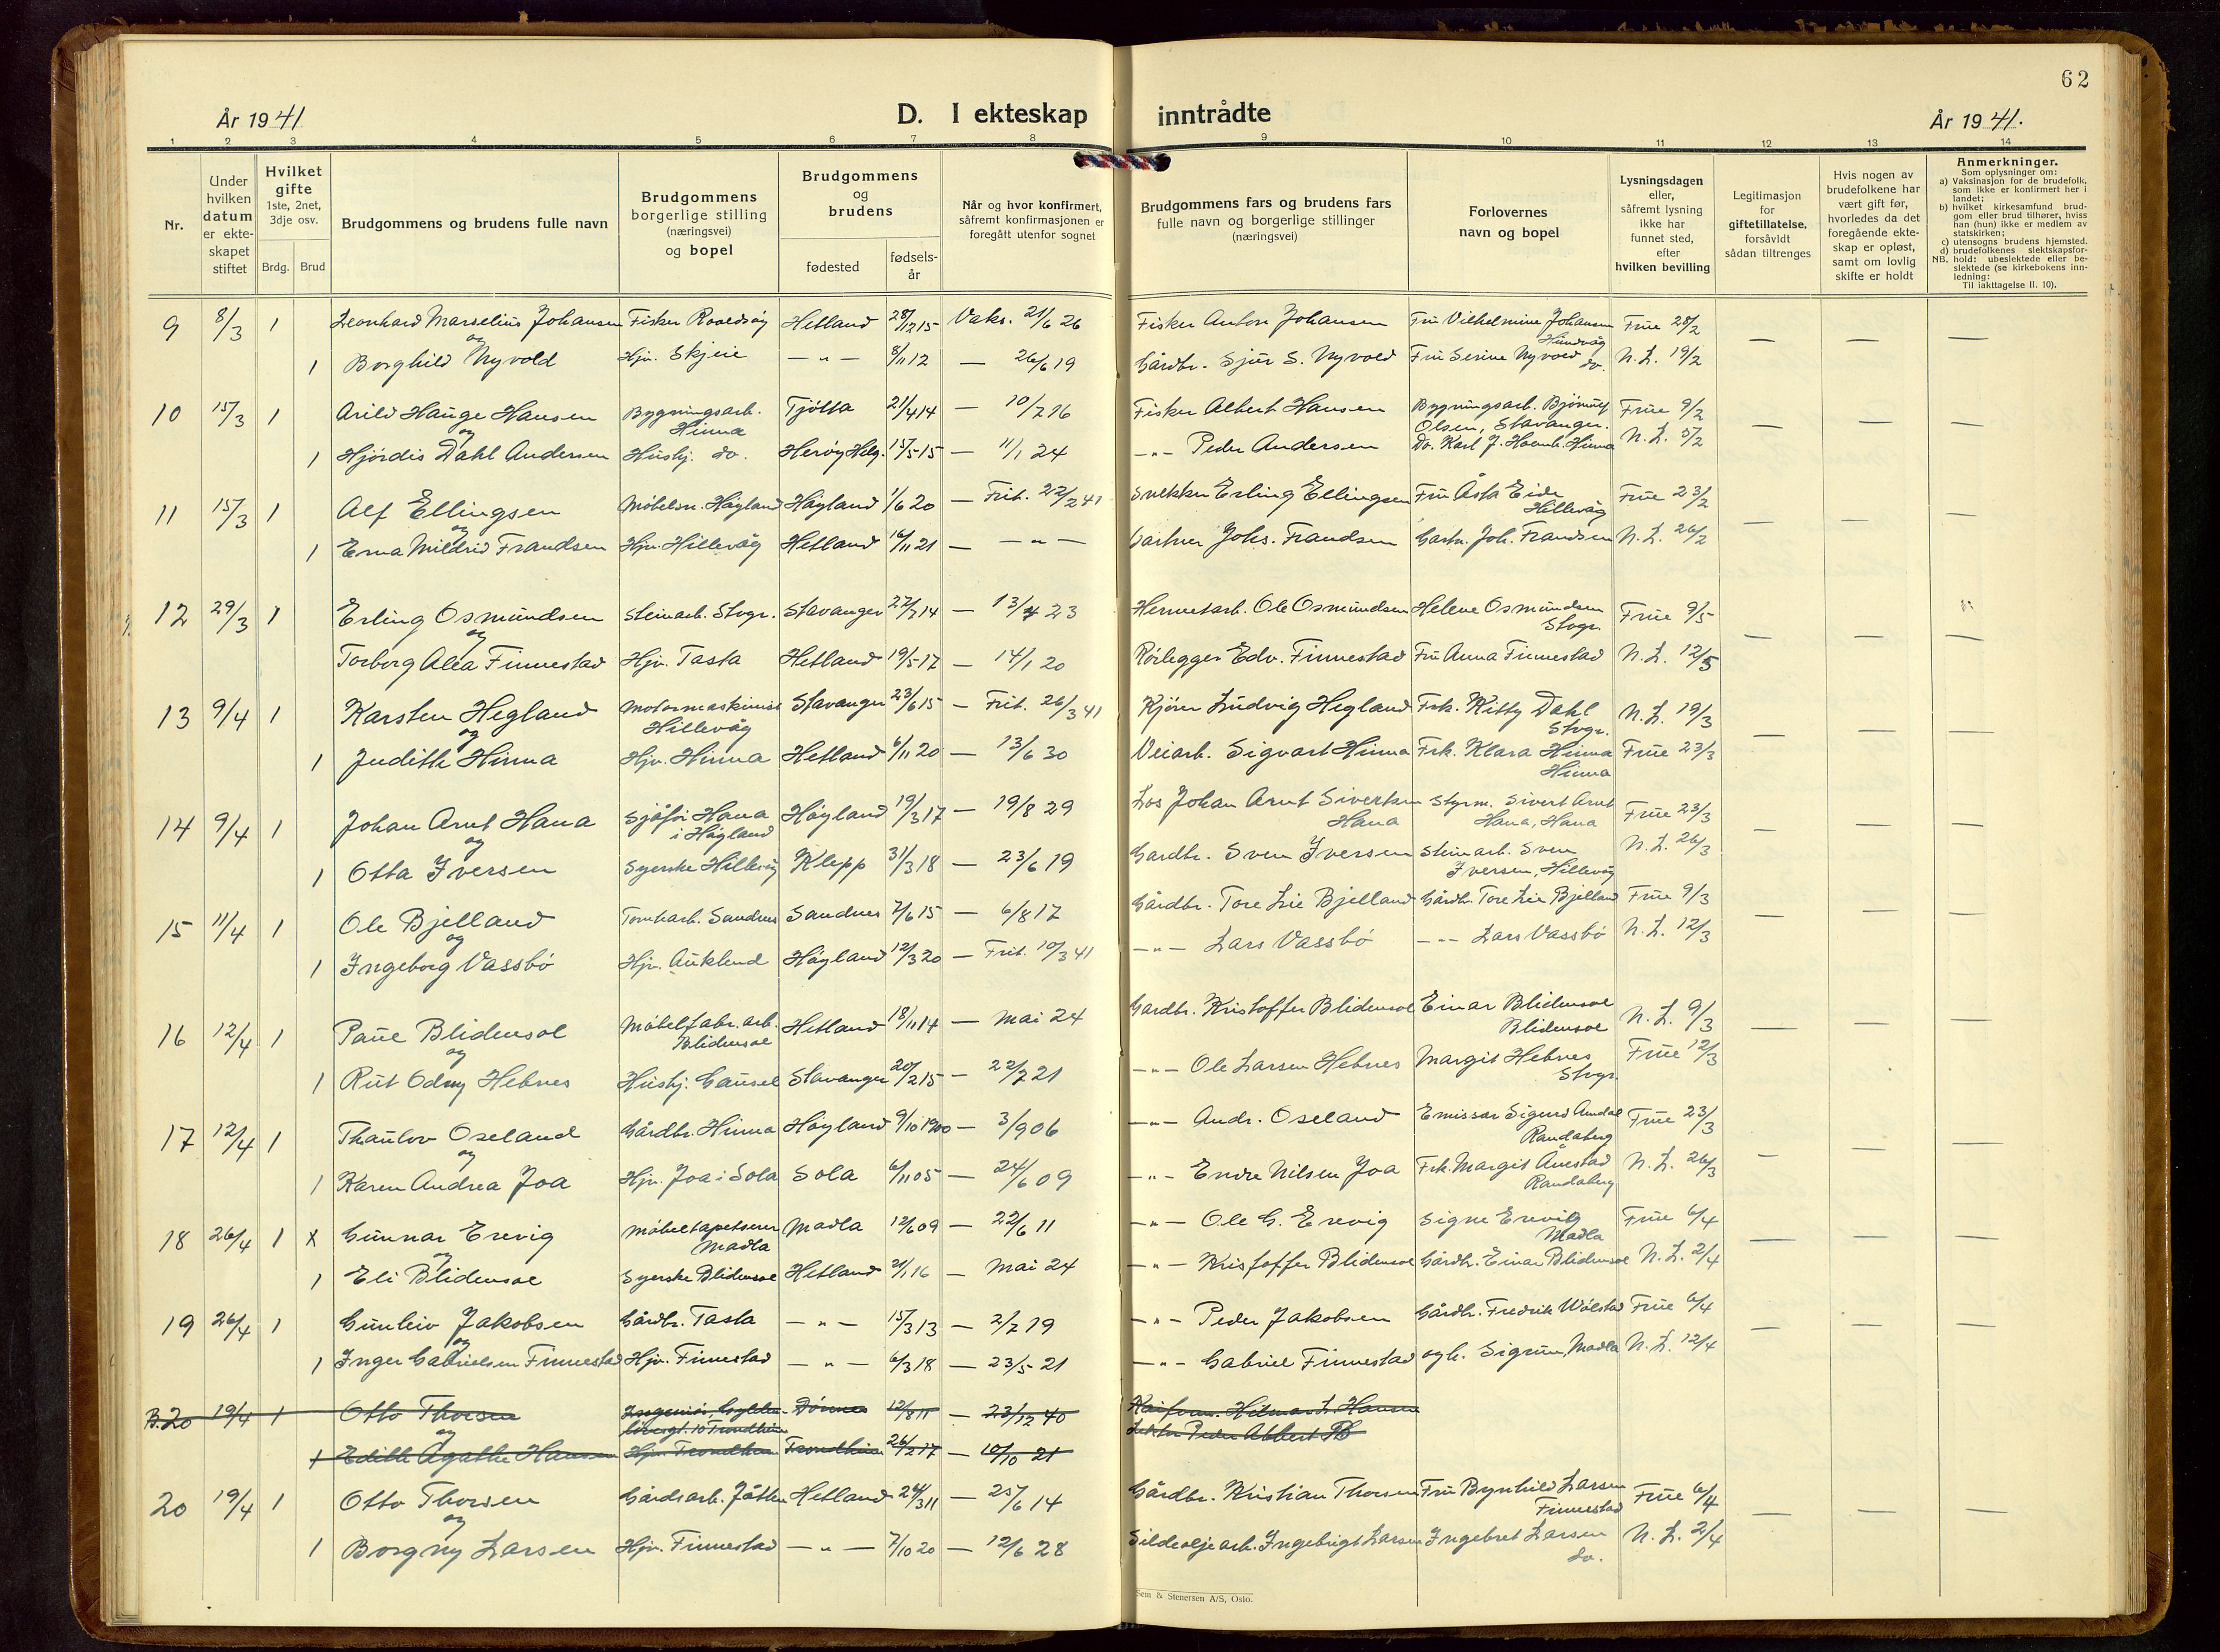 62
År 1941
D. I ekteskap inntrådte
År 1941.
1 2 3 4 5 6 7 8 9 10 11 12 13 14
Nr.
Under hvilken datum er ekteskapet stiftet
Hvilket gifte 1ste, 2net, 3dje osv.
Brdg. Brud
Brudgommens og brudens fulle navn
Brudgommens borgerlige stilling (næringsvei) og bopel
Brudgommens og brudens
fødested
fødselsår
Når og hvor konfirmert, såfremt konfirmasjonen er foregått utenfor sognet
Brudgommens fars og brudens fars fulle navn og borgerlige stillinger (næringsvei)
Forlovernes navn og bopel
Lysningsdagen eller, såfremt lysning ikke har funnet sted, efter hvilken bevilling
Legitimasjon for giftetillatelse, forsåvidt sådan tiltrenges
Hvis nogen av brudefolkene har vært gift før, hvorledes da det foregående ekteskap er opløst, samt om lovlig skifte er holdt
Anmerkninger.
Som oplysninger om:
a) Vaksinasjon for de brudefolk, som ikke er konfirmert her i landet;
b) hvilket kirkesamfund brudgom eller brud tilhører, hviss han (hun) ikke er medlem av statskirken;
c) utensogns brudens hjemsted.
d) brudefolkenes slektskapsforhold: ubeslektede eller beslektede (se kirkebokens innledning:
NB. Til iakttagelse II. 10).
9 8/3 1 Leonhard Marselius Johansen Fisker Hetland 28/12 15 Vaks. 21/6 26 Fisker Anton Johansen Fru Vilhelmine Johansen Hundvåg Frue 28/2
og
1 Borghild Nyvold Hjv. Skjeie — " — 8/11 12 — 26/6 19 Gårdbr. Sjur S. Nyvold Fru Serine Nyvold do. N. L. 19/2
10 15/3 1 Arild Hauge Hansen Bygningsarb. Hinna Tjøtta 21/4 14 — 10/7 16 Fisker Albert Hansen Bygningsarb. Olsen, Stavanger. Frue 9/2
og
1 Hjördis Dahl Andersen Husbj. do. Herøy Helg. 15/5 15 — 11/1 24 — " — Peder Andersen Do. Karl J. Hinna N. L. 5/2
11 15/3 1 Alf Ellingsen Möbelsn. Høyland Høyland 1/6 20 — Frit. 22/2 41 Snekker Erling Ellingsen Fru Åsta Eide Hillevåg Frue 23/2
og
1 Erna Mildrid Frandsen Hjv. Hillevåg Hetland 16/11 21 — — " — Gartner Johs. Frandsen Gartn. Joh. Frandsen N. L. 26/2
12 29/3 1 Erling Osmundsen Steinarb. Stvgr. Stavanger 22/7 14 — 13/4 23 Hermetarb. Ole Osmundsen Helene Osmundsen Stvgr. Frue 9/5
og
Torborg Alea Finnestad Hjv. Tasta Hetland 19/5 17 — 14/1 20 Rörlegger Edv. Finnestad Fru Anna Finnestad N. L. 12/5
13 9/4 1 Karsten Hegland Motormaskinist Hillevåg Stavanger 23/6 15 — Frit. 26/3 41 Kjörer Ludvig Hegland Frk. Kitty Dahl Stvgr. N. L. 19/3
og
1 Judith Hinna Hjv. Hinna Hetland 6/11 20 — 13/6 30 Veiarb. Sigvart Hinna Frk. Klara Hinna Hinna Frue 23/3
14 9/4 1 Johan Arnt Hana Sjåför Hana i Høyland Høyland 19/3 17 — 19/8 29 Los Johan Arnt Sivertsen Hana Styrm. Sivert Arnt Hana, Hana Frue 23/3
og
1 Otta Iversen Syerske Hillevåg Klepp 31/3 18 — 23/6 19 Gardbr. Sven Iversen Steinarb. Sven Iversen, Hillevåg N. L. 26/3
15 11/4 1 Ole Bjelland Sandnes Sandnes 7/6 15 — 6/8 17 Gårdbr. Tore Lie Bjelland Gårdb. Tore Lie Bjelland Frue 9/3
og
1 Ingeborg Vassbö Hjv. Auklend Høyland 12/3 20 — Frit. 10/3 41 — " — Lars Vassbö — " — Lars Vassbö N. L. 12/3
16 12/4 1 Paul Blidensol Möbelfabr. arb. Blidensol Hetland 18/11 14 — Mai 24 Gardbr. Kristoffer Blidensol Einar Blidensol Blidensol N. L. 9/3
og
1 Rut Odny Hebnes Husbj. Gausel Stavanger 20/2 15 — 22/7 21 — " — Ole Larsen Hebnes Margit Hebnes Stvgr. Frue 12/3
17 12/4 1 Thaulov Oseland Gårdbr. Hinna Høyland 9/10 1900 — 3/9 06 — " — Andr. Oseland Emissær Sigurd Randaberg Frue 23/3
og
1 Karen Andrea Joa Hjv. Joa i Sola Sola 6/11 05 — 24/6 09 — " — Endre Nilsen Joa Frk. Margit Randaberg N. L. 26/3
18 26/4 1 x Gunnar Erevig Möbeltapetserer Madla Madla 12/6 09 — 22/6 11 — " — Ole G. Erevig Signe Erevig Madla Frue 6/4
og
1 Eli Blidensol Syerske Blidensol Hetland 21/1 16 — Mai 24 — " — Kristoffer Blidensol Gårdb. Einar Blidensol N. L. 2/4
19 26/4 1 Gunleiv Jakobsen Gårdbr. Tasta — " — 15/3 13 — 2/7 19 — " — Peder Jakobsen Gårdb. Fredrik Wölstad Frue 6/4
og
1 Inger Gabrielsen Finnestad Hjv. Finnestad — " — 6/3 18 — 23/5 21 — " — Gabriel Finnestad og h. Sigrun, Madla N. L. 12/4
B. 20 19/4 1 Otto Thorsen Trondheim 12/8 11 — 23/12 40 Hilmar L. Hansen
og
1 Edith Agathe Hansen Hjv. Trondheim Trondheim 26/2 17 — 10/10 21 Lektor Peder Albert
20 19/4 1 Otto Thorsen Gårdsarb. Jåtten Hetland 24/3 11 — 25/6 14 Gårdbr. Kristian Thorsen Fru Bynhild Larsen Finnestad Frue 6/4
og
1 Borgny Larsen Hjv. Finnestad — " — 7/10 20 — 12/6 28 Sildeoljearb. Ingebrigt Larsen Ingebret Larsen do. N. L. 2/4
Sem & Stenersen A/S, Oslo.